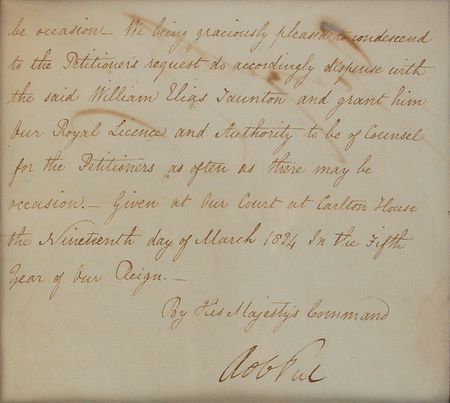 be occasion – We being graciously pleased to condescend
to the Petitioners request do accordingly dispense with
the said William Elias Taunton and grant him
Our Royal Licence and Authority to be of Counsel
for the Petitioners as often as there may be
occasion. – Given at Our Court at Carlton House
the Nineteenth day of March 1824 In the Fifth
Year of Our Reign. –
By His Majesty's Command
Rob Peel